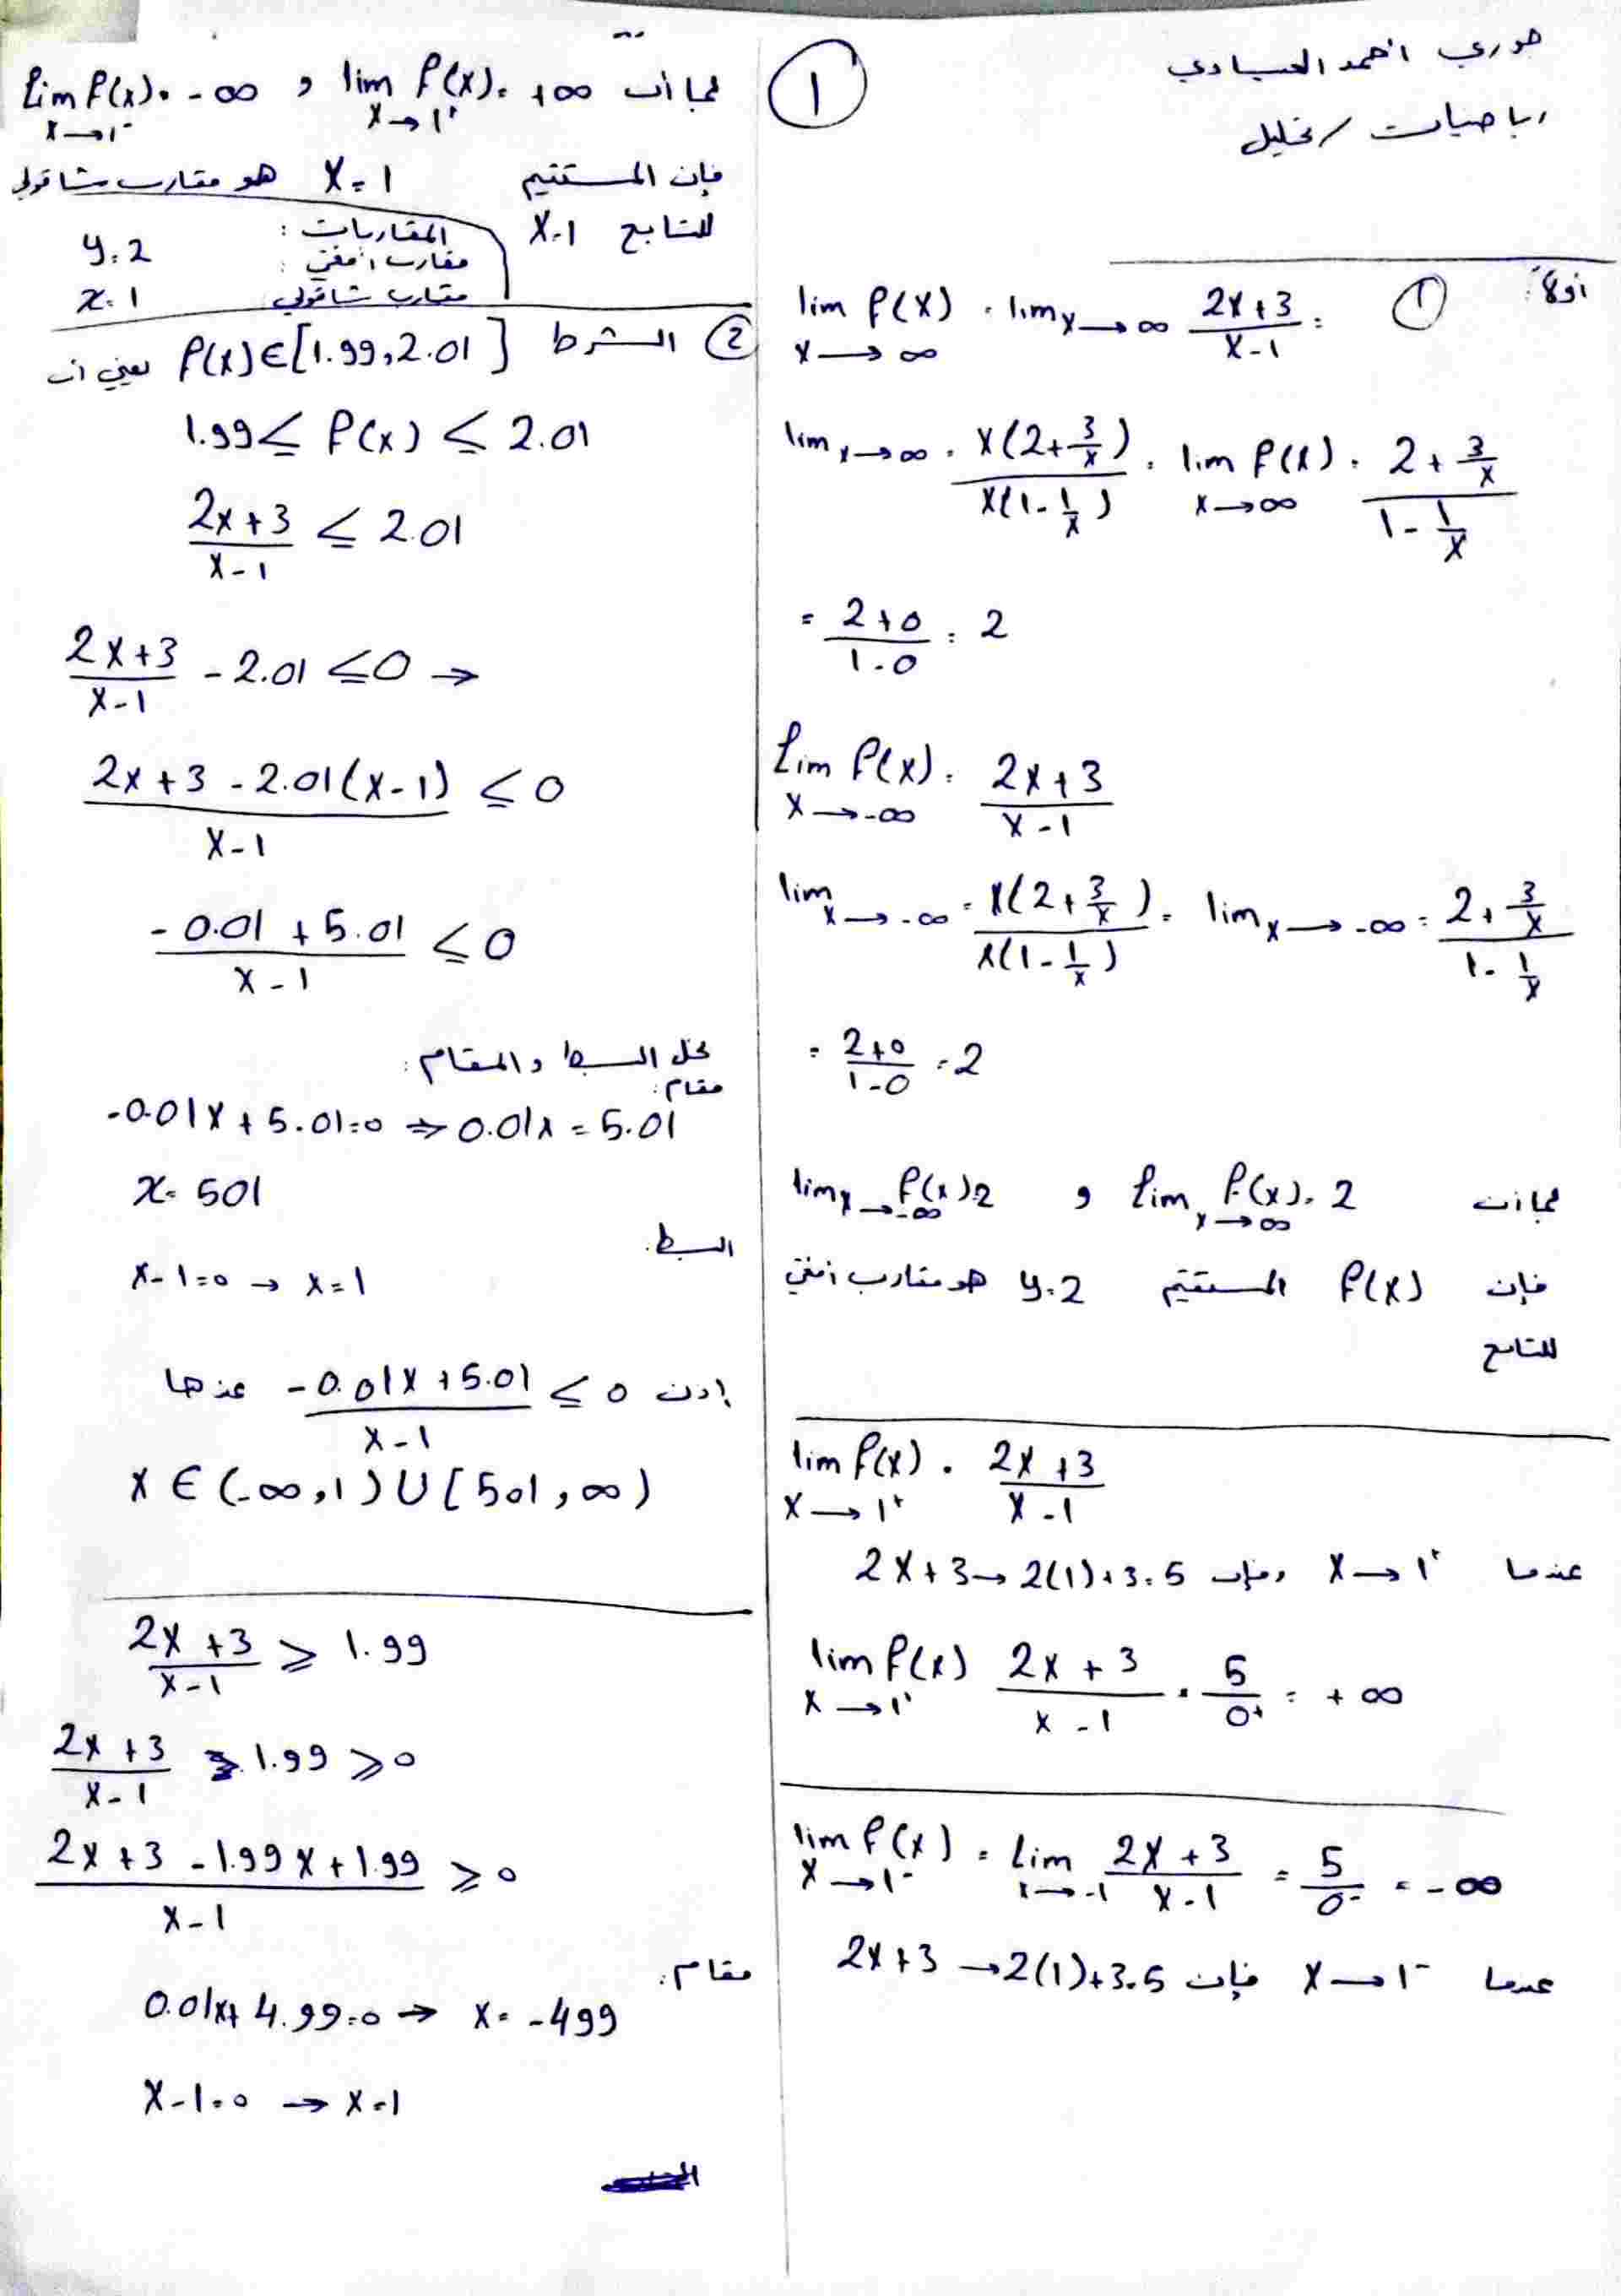 حوري احمد العبادي
رياضيات / تحليل
1
أولاً: 1
lim f(x) = lim x→∞ 2x+3 / x-1 =
x→∞
lim x→∞ = x(2+3/x) / x(1-1/x) = lim f(x) = 2+3/x / 1-1/x
x→∞
= 2+0 / 1-0 = 2
lim f(x) = 2x+3 / x-1
x→-∞
lim x→-∞ = x(2+3/x) / x(1-1/x) = lim x→-∞ = 2+3/x / 1-1/x
= 2+0 / 1-0 = 2
بما أن lim x→∞ f(x) = 2 و lim x→-∞ f(x) = 2
فإن f(x) المستقيم y=2 هو مقارب أفقي
للتابع
lim f(x) = 2x+3 / x-1
x→1+
عندما x→1+ فإن 2x+3→2(1)+3=5
lim f(x) 2x+3 / x-1 = 5/0+ = +∞
x→1+
lim f(x) = lim 2x+3 / x-1 = 5/0- = -∞
x→1- x→-1
عندما x→1- فإن 2x+3→2(1)+3=5
بما أن lim f(x) = +∞ و lim f(x) = -∞
x→1+ x→1-
فإن المستقيم x=1 هو مقارب شاقولي
للتابع x-1
المقاربات:
مقارب أفقي: y=2
مقارب شاقولي x=1
2 الشرط f(x)∈[1.99,2.01] يعني ان
1.99 ≤ f(x) ≤ 2.01
2x+3 / x-1 ≤ 2.01
2x+3 / x-1 - 2.01 ≤ 0 →
2x+3-2.01(x-1) / x-1 ≤ 0
-0.01+5.01 / x-1 ≤ 0
نحل البسط والمقام:
مقام:
-0.01x+5.01=0 ⇒ 0.01x=5.01
x=501
البسط:
x-1=0 → x=1
إذن -0.01x+5.01 / x-1 ≤ 0 عندها
x∈(-∞,1)∪[501,∞)
2x+3 / x-1 ≥ 1.99
2x+3 / x-1 - 1.99 ≥ 0
2x+3-1.99x+1.99 / x-1 ≥ 0
مقام:
0.01x+4.99=0 → x=-499
x-1=0 → x=1